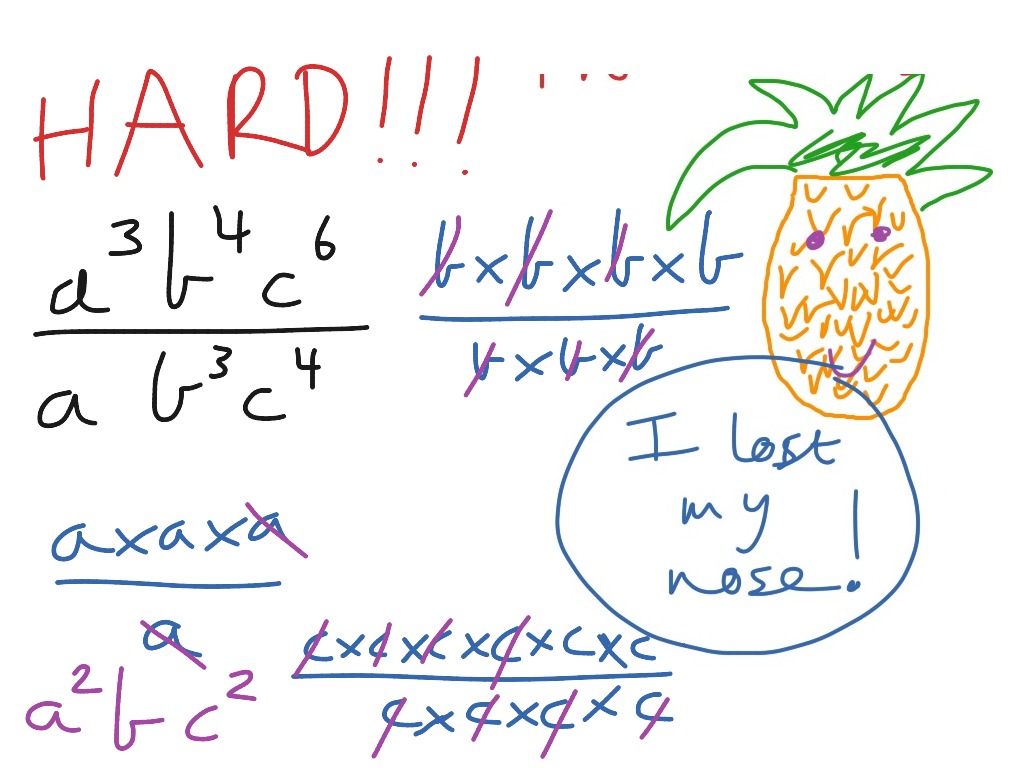 HARD!!!
a³b⁴c⁶
a b³c⁴
b×b×b×b
b×b×b
I lost
my
nose!
a×a×a
a
c×c×c×c×c×c
c×c×c×c
a²bc²